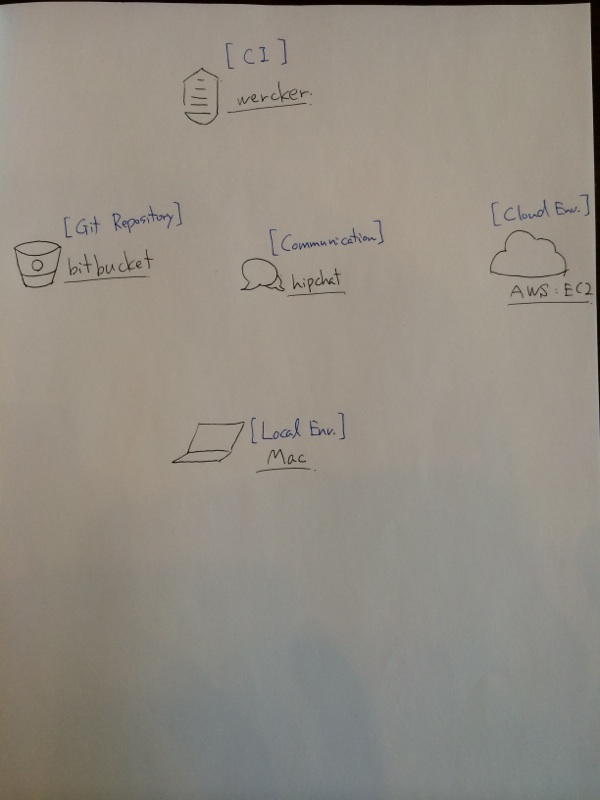 [CI]
wercker.
[Git Repository]
bitbucket
[Communication]
hipchat
[Cloud Env.]
AWS:EC2
[Local Env.]
Mac